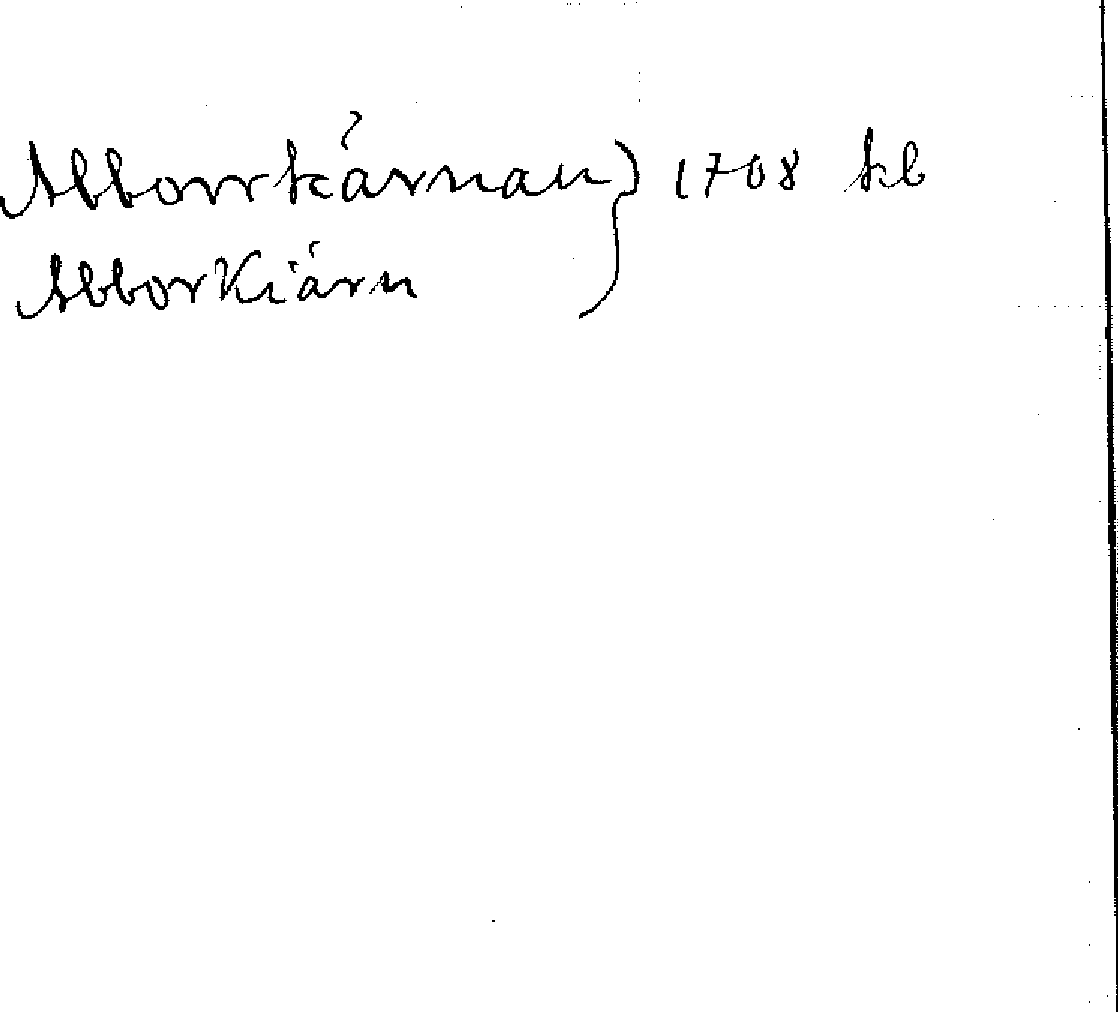 Abborrkärnan } 1708 kb
Abborkiärn